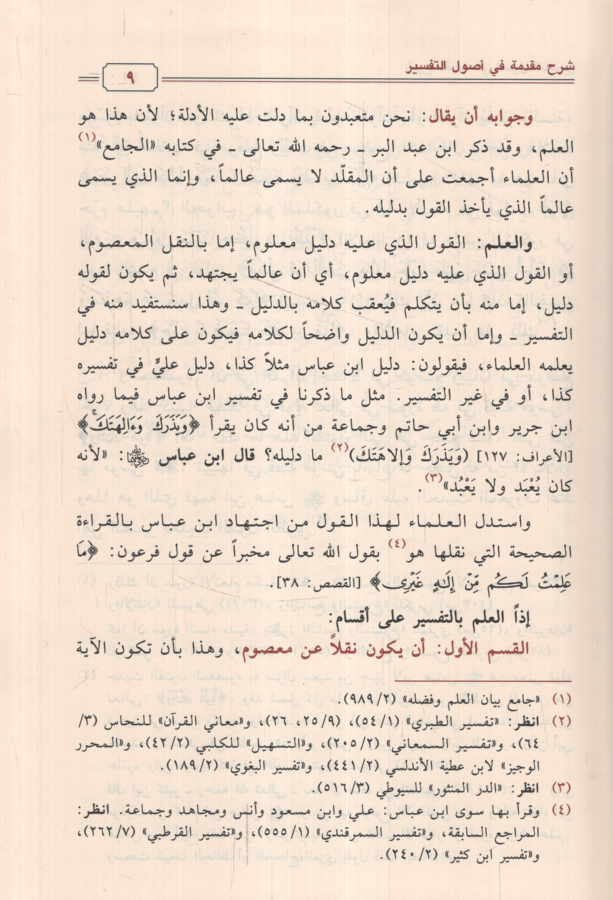 شرح مقدمة في أصول التفسير
٩
وجوابه أن يقال: نحن متعبدون بما دلت عليه الأدلة؛ لأن هذا هو
العلم، وقد ذكر ابن عبد البر ـ رحمه الله تعالى ـ في كتابه «الجامع»(١)
أن العلماء أجمعت على أن المقلّد لا يسمى عالماً، وإنما الذي يسمى
عالماً الذي يأخذ القول بدليله.
والعلم: القول الذي عليه دليل معلوم، إما بالنقل المعصوم،
أو القول الذي عليه دليل معلوم، أي أن عالماً يجتهد، ثم يكون لقوله
دليل، إما منه بأن يتكلم فيُعقب كلامه بالدليل ـ وهذا سنستفيد منه في
التفسير ـ وإما أن يكون الدليل واضحاً لكلامه فيكون على كلامه دليل
يعلمه العلماء، فيقولون: دليل ابن عباس مثلاً كذا، دليل عليٍّ في تفسيره
كذا، أو في غير التفسير. مثل ما ذكرنا في تفسير ابن عباس فيما رواه
ابن جرير وابن أبي حاتم وجماعة من أنه كان يقرأ ﴿وَيَذَرَكَ وَءَالِهَتَكَۚ﴾
[الأعراف: ١٢٧] (وَيَذَرَكَ وَإلاهَتَكَ)(٢) ما دليله؟ قال ابن عباس ﵄: «لأنه
كان يُعْبَد ولا يَعْبُد»(٣).
واستدل العلماء لهذا القول من اجتهاد ابن عباس بالقراءة
الصحيحة التي نقلها هو(٤) بقول الله تعالى مخبراً عن قول فرعون: ﴿مَا
عَلِمْتُ لَكُم مِّنْ إِلَٰهٍ غَيْرِى﴾ [القصص: ٣٨].
إذاً العلم بالتفسير على أقسام:
القسم الأول: أن يكون نقلاً عن معصوم، وهذا بأن تكون الآية
(١) «جامع بيان العلم وفضله» (٩٨٩/٢).
(٢) انظر: «تفسير الطبري» (٥٤/١)، (٢٥/٩، ٢٦)، و«معاني القرآن» للنحاس (٣/
٦٤)، و«تفسير السمعاني» (٢٠٥/٢)، و«التسهيل» للكلبي (٤٢/٢)، و«المحرر
الوجيز» لابن عطية الأندلسي (٤٤١/٢)، و«تفسير البغوي» (١٨٩/٢).
(٣) انظر: «الدر المنثور» للسيوطي (٥١٦/٣).
(٤) وقرأ بها سوى ابن عباس: علي وابن مسعود وأنس ومجاهد وجماعة. انظر:
المراجع السابقة، و«تفسير السمرقندي» (٥٥٥/١)، و«تفسير القرطبي» (٢٦٢/٧)،
و«تفسير ابن كثير» (٢٤٠/٢).